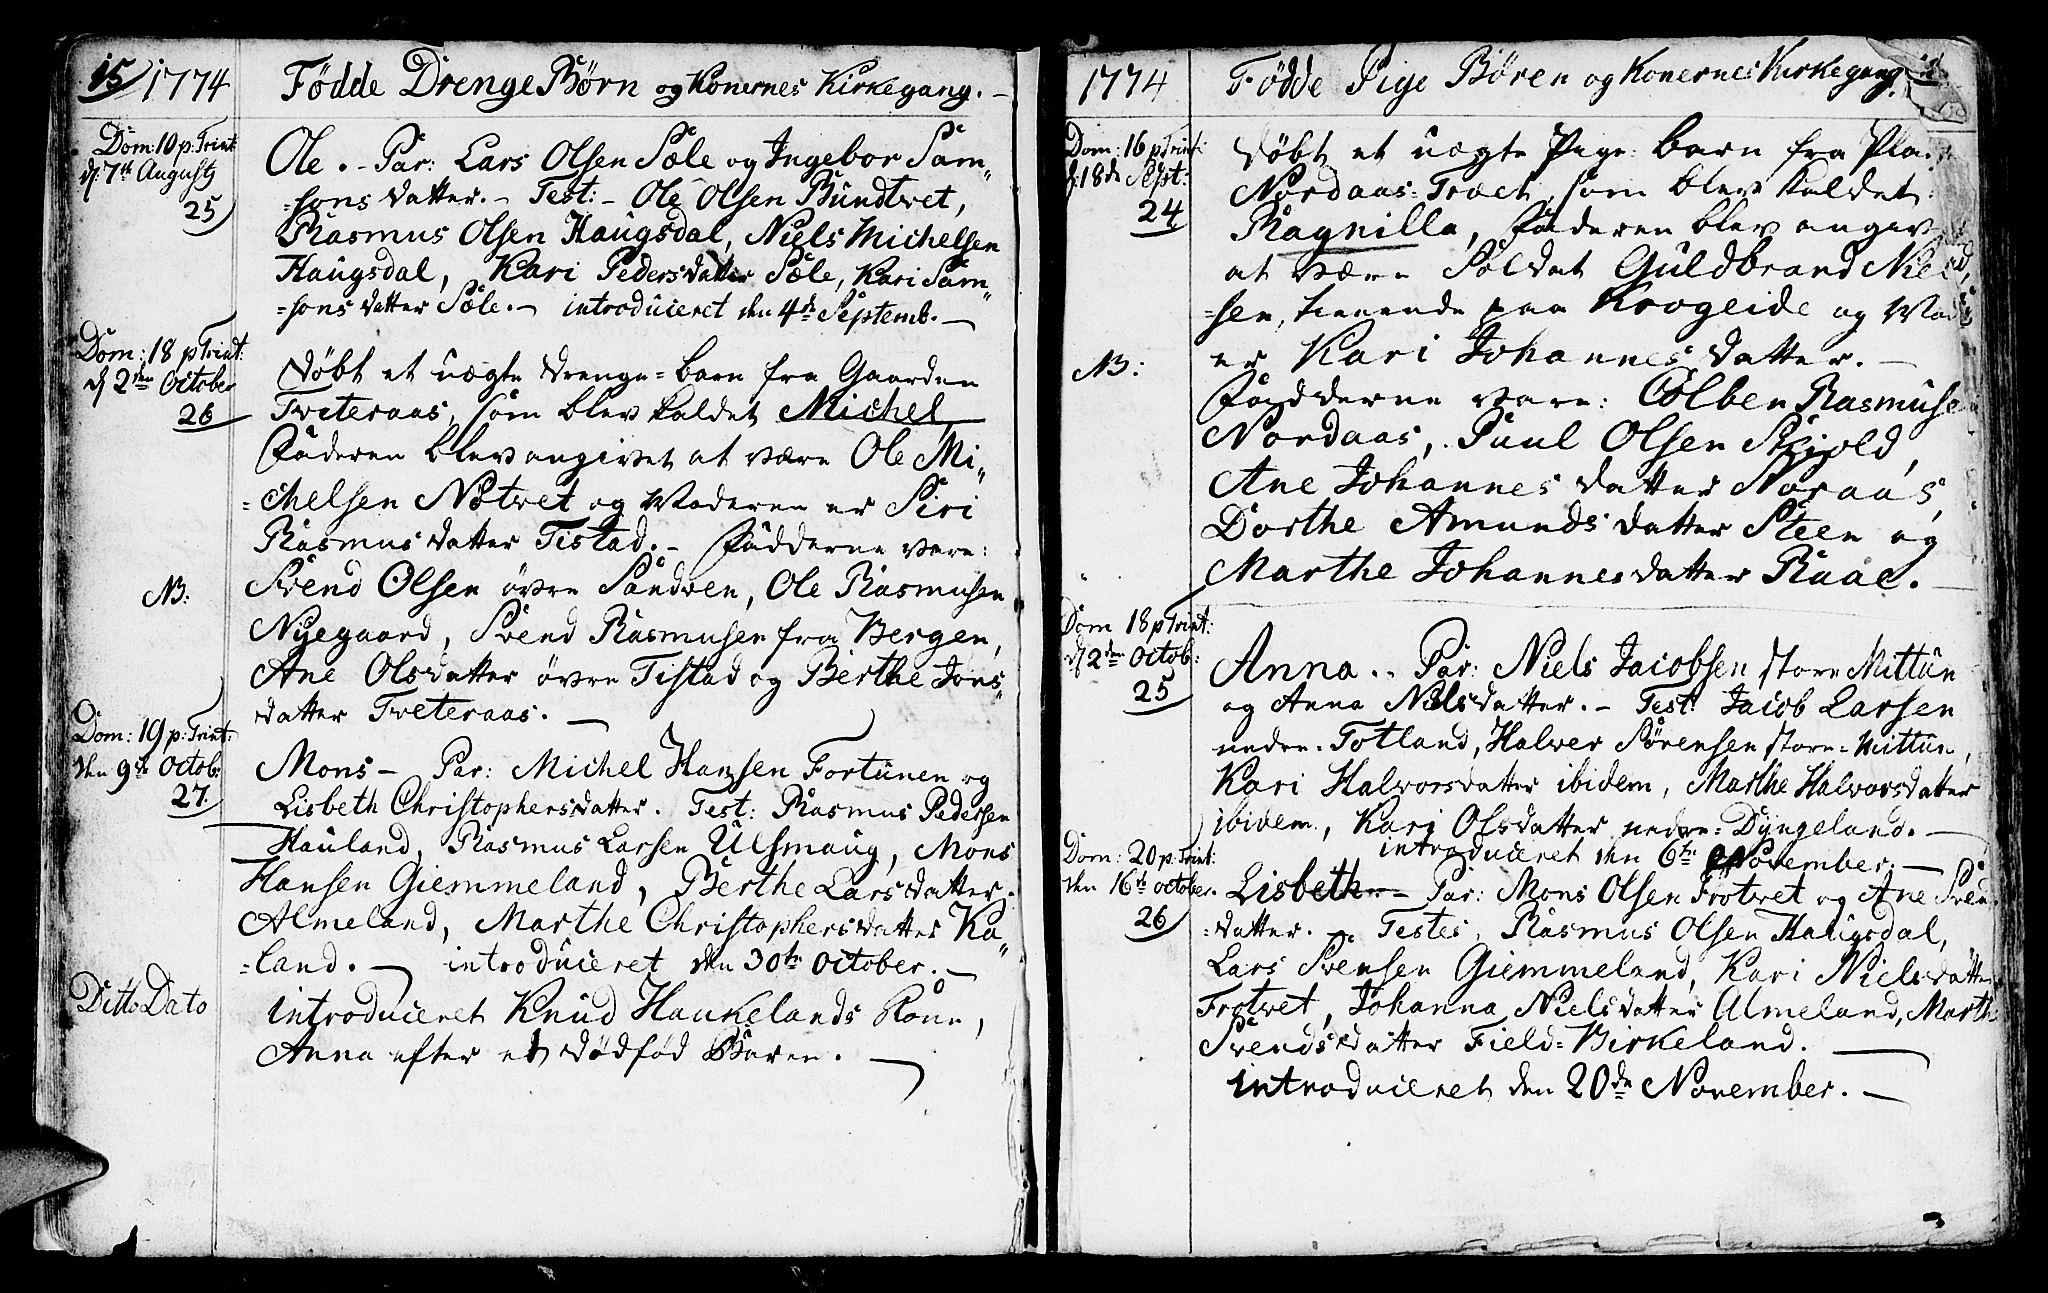 15 1774 Fødde Drenge Børn og Konernes Kirkegang. –
Dom: 10 p: Trint:
d: 7de Augustj
25
Ole. – Par: Lars Olsen Sæle og Ingebor Sam„
=sons datter. – Test: – Ole Olsen Bundtvet,
Rasmus Olsen Haugsdal, Niels Michelsen
Haugsdal, Kari Pedersdatter Sæle, Kari Sam„
=sons datter Sæle. – introduceret den 4de Septemb. –
Dom: 18 p Trint:
d 2den October
26
Døbt et uægte Drenge=barn fra Gaarden
Tveteraas, som blev kaldet Michel,
Faderen blev angivet at være Ole Mi„
=chelsen Nøtvet og Moderen er Siri
Rasmusdatter Tistad. – Fadderne vare:
NB:
Svend Olsen øvre Sandven, Ole Rasmusen
Nyegaard, Svend Rasmusen fra Bergen,
Ane Olsdatter øvre Tistad og Berthe Jons„
datter Tveteraas. –
Dom: 19 p: Trint:
den 9de Octobr
27.
Mons – Par: Michel Hansen Fortunen og
Lisbeth Christophersdatter. Test: Rasmus Pedersen
Hauland, Rasmus Larsen Ulsmaug, Mons
Hansen Giemmeland, Berthe Larsdatter
Almeland, Marthe Christophersdatter Ka„
=land. – introduceret den 30te October. –
Ditto Dato
introduceret Knud Haukelands Kone,
Anna efter et dødfød Baren. –
1774 Fødde Pige Børen og Konernes Kirkegang.
Dom: 16 p Trint:
d: 18de Sept:
24
Døbt et uægte Pige=barn fra
Nordaas=Træet, som blev kaldet
Ragnilla, Faderen blev angiv
at være Soldat Guldbrand Niel
=sen, tienende paa Krogeide og Mod
er Kari Johannesdatter. –
NB:
Fadderne vare: Colben Rasmuse
Nordaas, Paul Olsen Skjold,
Ane Johannesdatter Noraas,
Dorthe Amundsdatter Steen og
Marthe Johannesdatter Raae. –
Dom 18 p Trint:
d 2den Octob:
25
Anna. – Par: Niels Jacobsen store Mittun
og Anna Nielsdatter. – Test: Jacob Larsen
nedre=Totland, Halver Sørensen store=Mittun,
Kari Halvorsdatter ibidem, Marthe Halvorsdatter
ibidem, Kari Olsdatter nedre=Dyngeland. –
introduceret den 6te November. –
Dom: 20 p: Trint:
den 16de October.
26
Lisbeth – Par: Mons Olsen Frotvet og Ane Sven
=datter. – Testes, Rasmus Olsen Haugsdal,
Lars Svensen Giemmeland, Kari Nielsdatter
Frotvet, Johanna Nielsdatter Almeland, Marth
Svendsdatter Field=Birkeland. –
introduceret den 20de November. –